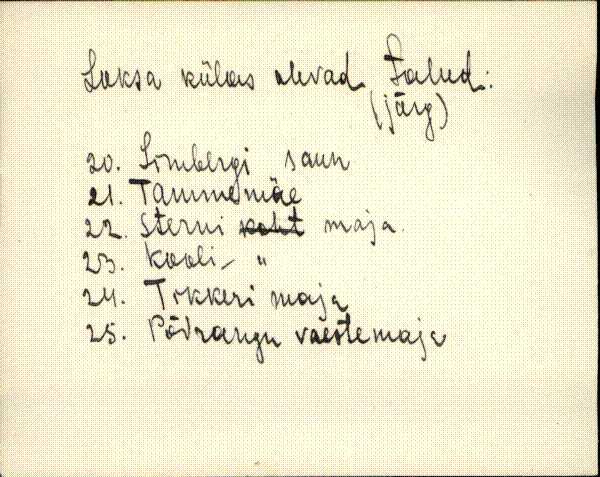 Loksa külas olevad talud:
(järg)
20. Limbergi saun
21. Tammemäe
22. Sterni koht maja.
23. Kooli- "
24. Tikkeri maja
25. Põdrangu vaestemaja